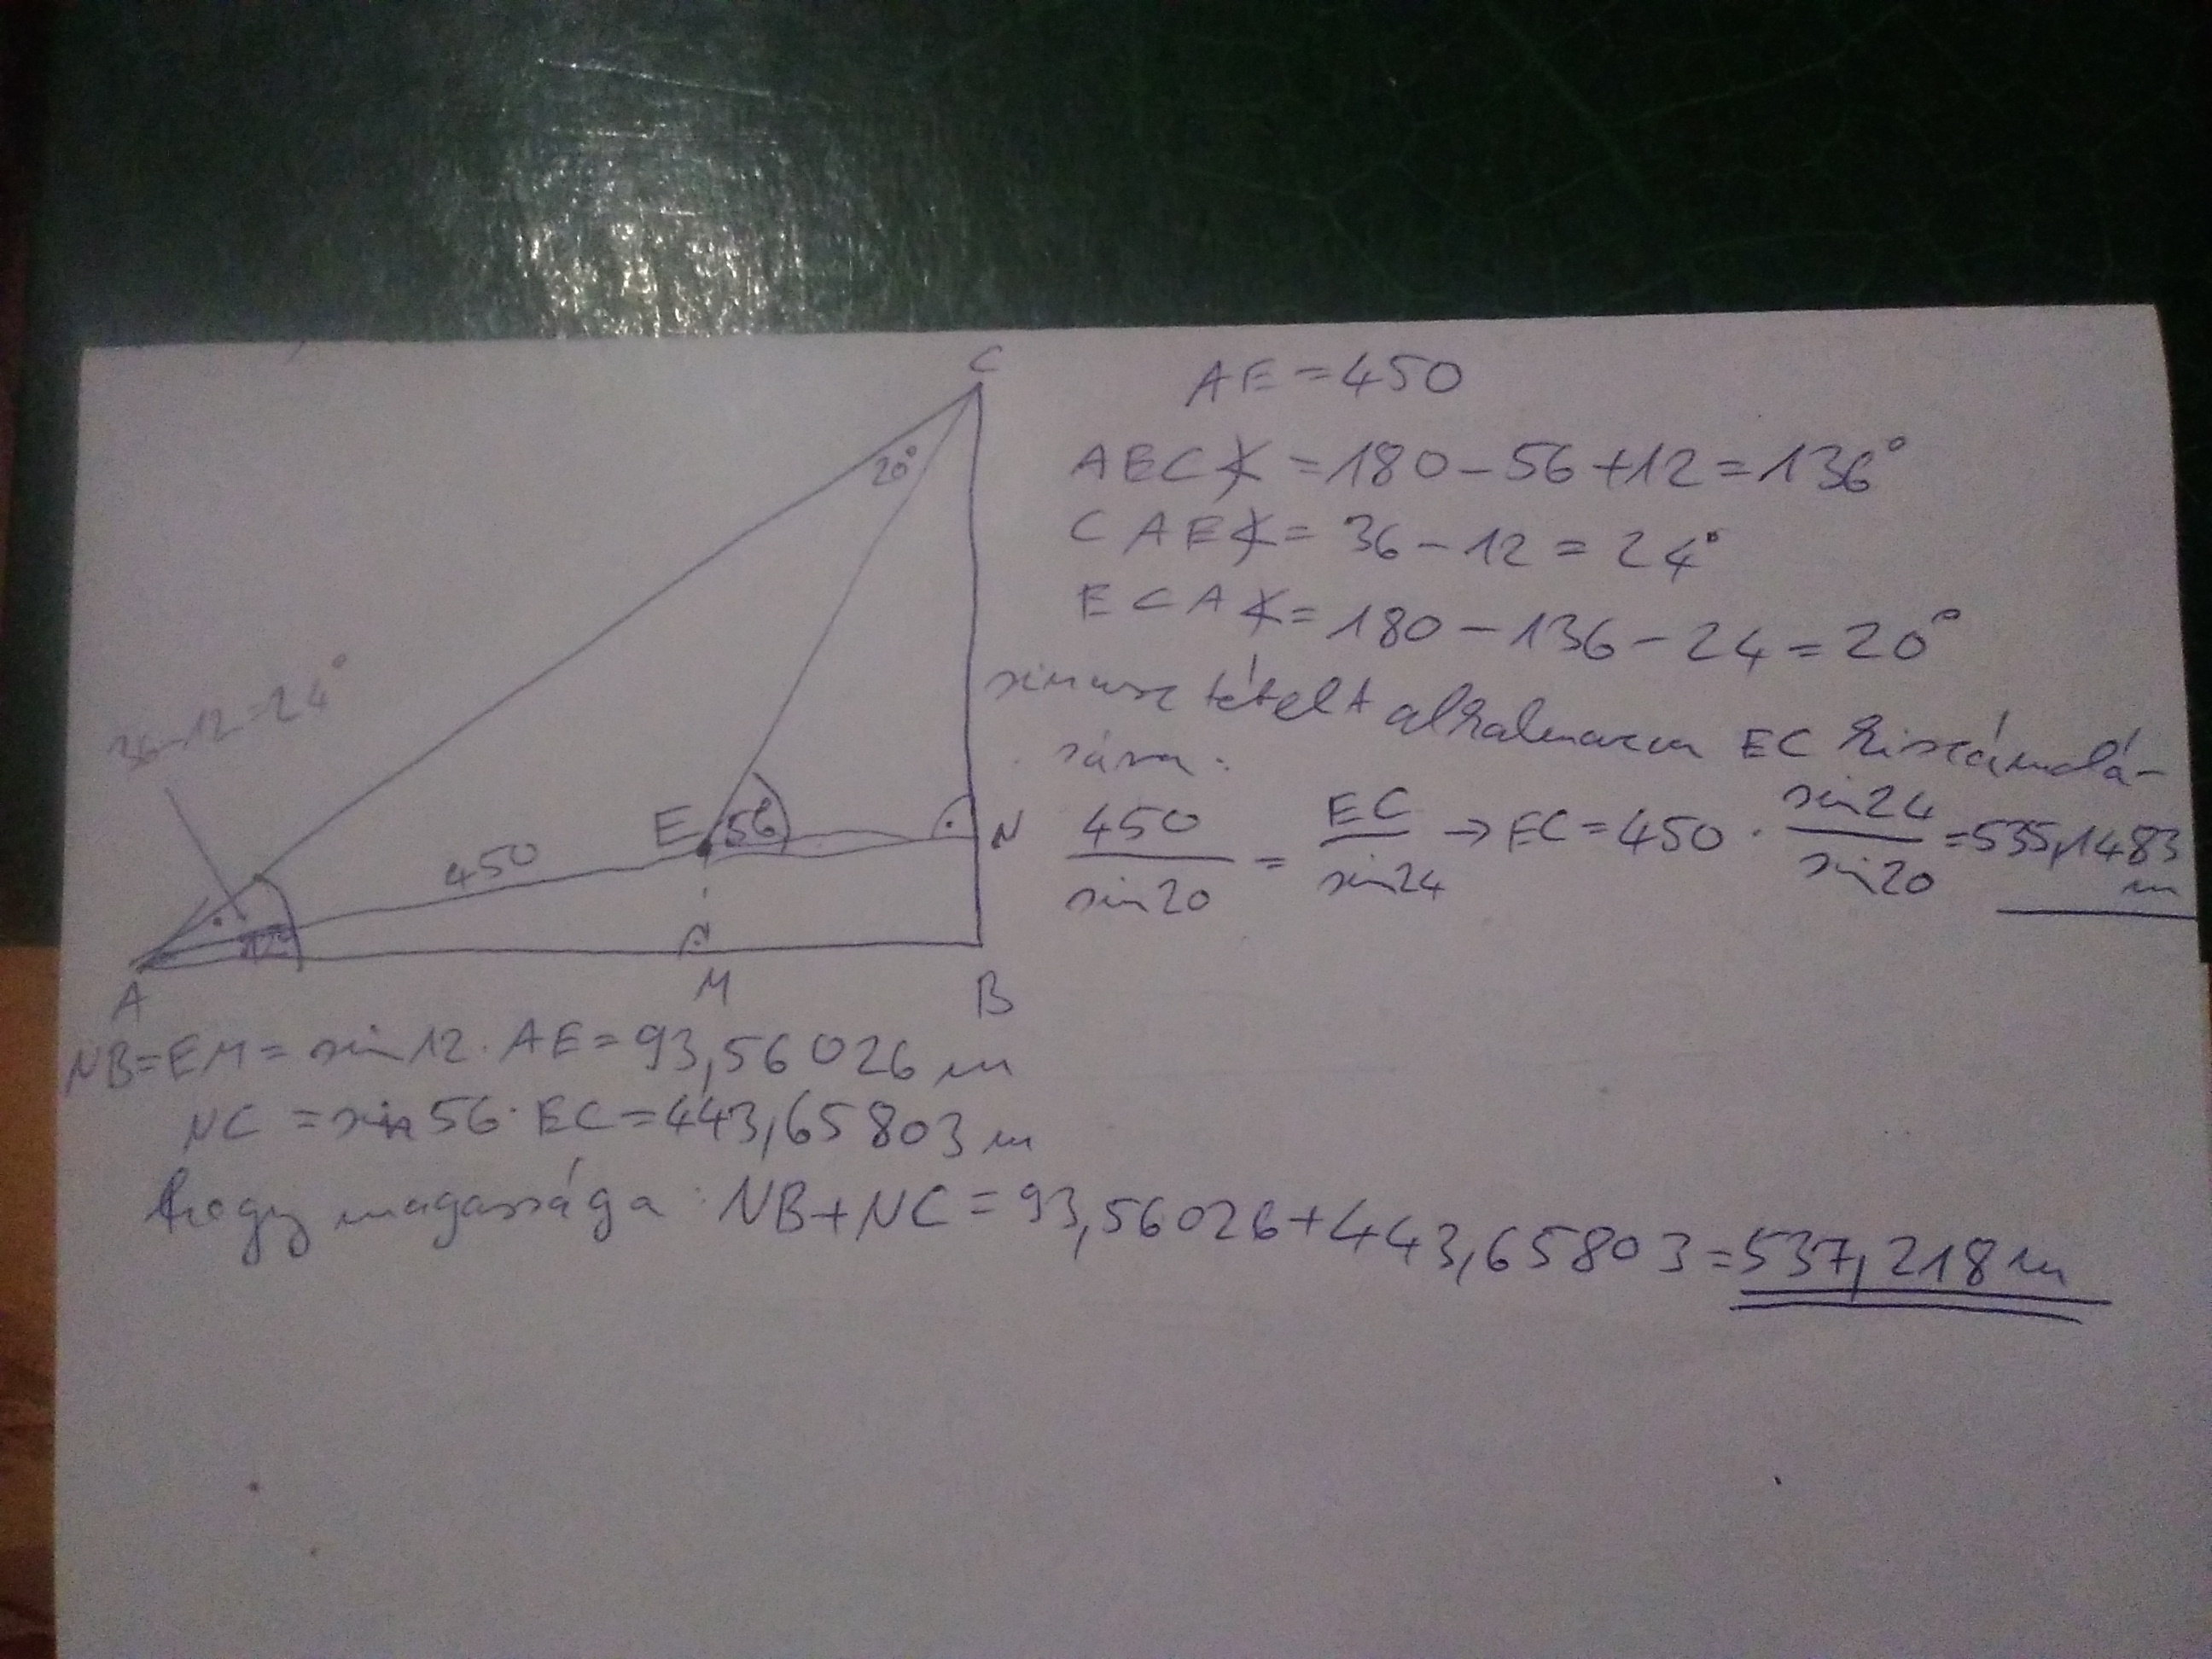 C
20°
36-12=24°
450
E
56
N
12°
A
M
B
AE=450
AEC∢=180-56+12=136°
CAE∢=36-12=24°
ECA∢=180-136-24=20°
sinusz tételt alkalmazva EC kiszámolá-
sára:
450/sin20 = EC/sin24 → EC=450·sin24/sin20=535,1483
m
NB=EM=sin12·AE=93,56026 m
NC=sin56·EC=443,65803 m
hegy magassága: NB+NC=93,56026+443,65803=537,218 m